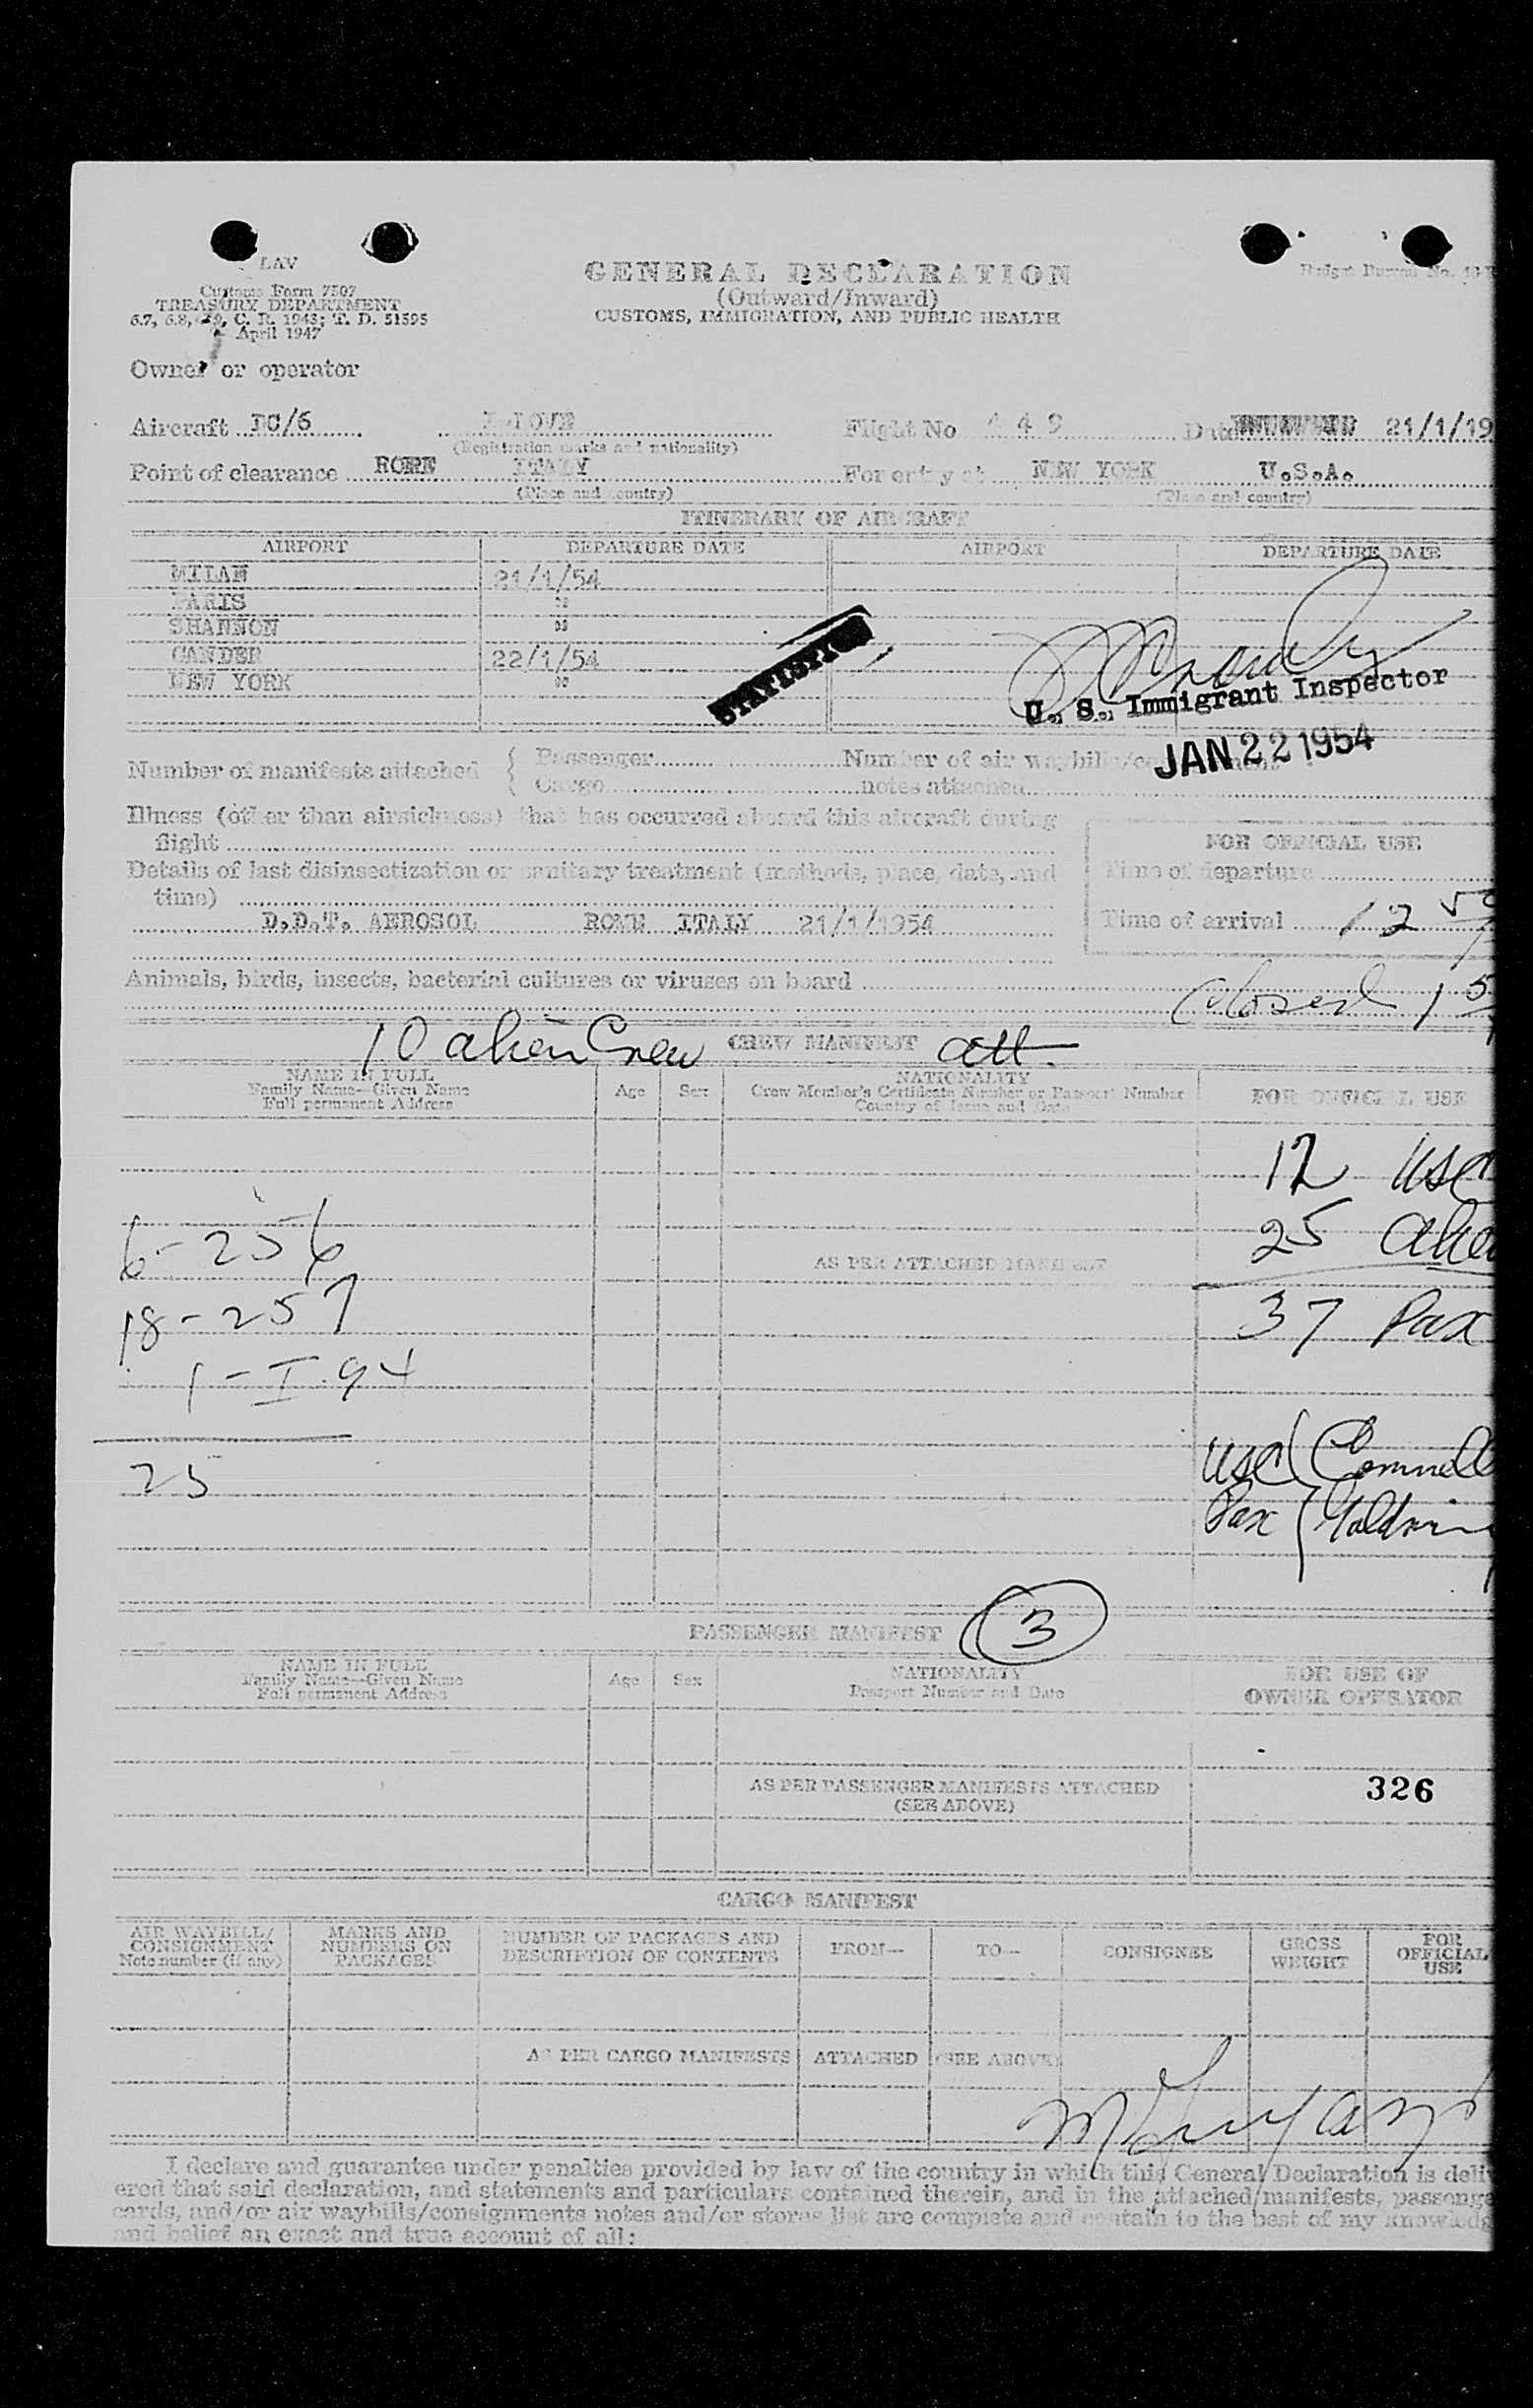 LAV
Customs Form 7507
TREASURY DEPARTMENT
6.7, 6.8, C. R. 1943; T. D. 51595
April 1947
GENERAL DECLARATION
(Outward/Inward)
CUSTOMS, IMMIGRATION, AND PUBLIC HEALTH
Budget Bureau No.
Owner or operator
Aircraft DC/6 Flight No 449 Date 21/1/19
(Registration marks and nationality)
Point of clearance ROME ITALY For entry at NEW YORK U.S.A.
(Place and country) (Place and country)
ITINERARY OF AIRCRAFT
AIRPORT DEPARTURE DATE AIRPORT DEPARTURE DATE
MILAN 21/1/54
PARIS "
SHANNON "
GANDER 22/1/54
NEW YORK "
STATISTICS
U. S. Immigrant Inspector
JAN 22 1954
Number of manifests attached { Passenger Number of air waybills/consignment
Cargo notes attached
Illness (other than airsickness) that has occurred aboard this aircraft during
flight
FOR OFFICIAL USE
Details of last disinsectization or sanitary treatment (methods, place, date, and
time)
Time of departure
D.D.T. AEROSOL ROME ITALY 21/1/1954
Time of arrival 12 50
Animals, birds, insects, bacterial cultures or viruses on board
Closed 1 5
10 alien Crew CREW MANIFEST att.
NAME IN FULL
Family Name—Given Name
Full permanent Address
Age Sex
NATIONALITY
Crew Member's Certificate Number or Passport Number
Country of Issue and Date
FOR OFFICIAL USE
12 USC
25 alie
37 Pax
AS PER ATTACHED MANIFEST
6-256
18-257
1-I.94
25
USC
Pax
3
PASSENGER MANIFEST
NAME IN FULL
Family Name—Given Name
Full permanent Address
Age Sex
NATIONALITY
Passport Number and Date
FOR USE OF
OWNER OPERATOR
AS PER PASSENGER MANIFESTS ATTACHED
(SEE ABOVE)
326
CARGO MANIFEST
AIR WAYBILL/
CONSIGNMENT
Note number (if any)
MARKS AND
NUMBERS ON
PACKAGES
NUMBER OF PACKAGES AND
DESCRIPTION OF CONTENTS
FROM— TO— CONSIGNEE
GROSS
WEIGHT
FOR
OFFICIAL
USE
AS PER CARGO MANIFESTS ATTACHED (SEE ABOVE)
I declare and guarantee under penalties provided by law of the country in which this General Declaration is deliv
ered that said declaration, and statements and particulars contained therein, and in the attached/manifests, passenge
cards, and/or air waybills/consignments notes and/or stores list are complete and contain to the best of my knowledg
and belief an exact and true account of all: